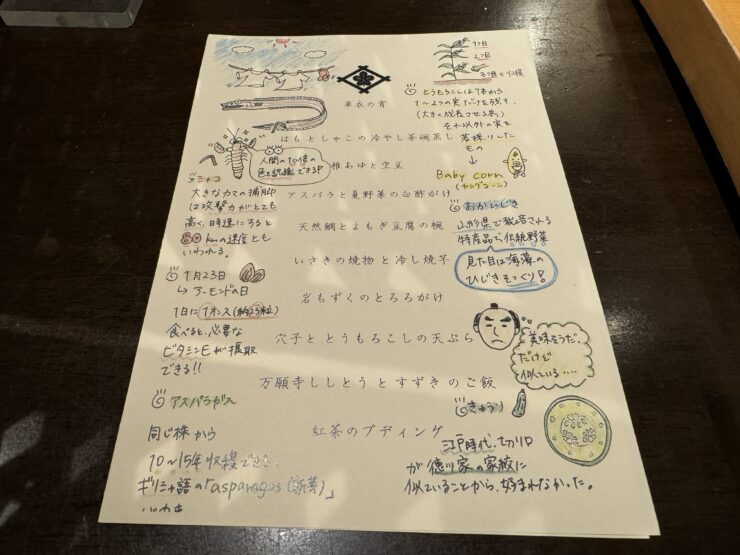 1つ目
2つ目
3つ目ヤング
とうもろこしは1本から
1〜2つの実だけを残す.
(大きく成長させる為)
それ以外の実を
若採りした
もの
↓
Baby corn
(ヤングコーン)
おかひじき
山形県で栽培される
特産品で伝統野菜
見た目は海藻の
ひじきそっくり!
美味そうだ.
だけど
似ている....
きゅうり
江戸時代、切り口
が徳川家の家紋に
似ていることから、好まれなかった。
更衣の宵
はもとしゃこの冷やし茶碗蒸し
稚あゆと空豆
アスパラと夏野菜の白酢がけ
天然鯛とよもぎ豆腐の椀
いさきの焼物と冷し焼芋
岩もずくのとろろがけ
穴子ととうもろこしの天ぷら
万願寺ししとうとすずきのご飯
紅茶のプディング
シャコ
人間の10倍の
色を認識できる!!
大きなカマの捕脚
は攻撃力がとても
高く、時速にすると
80kmの速度とも
いわれる。
1月23日
↳アーモンドの日
1日に1オンス(約23粒)
食べると、必要な
ビタミンEが摂取
できる!!
アスパラガス
同じ株から
10〜15年収穫できる.
ギリシャ語の「asparagos(新芽)」